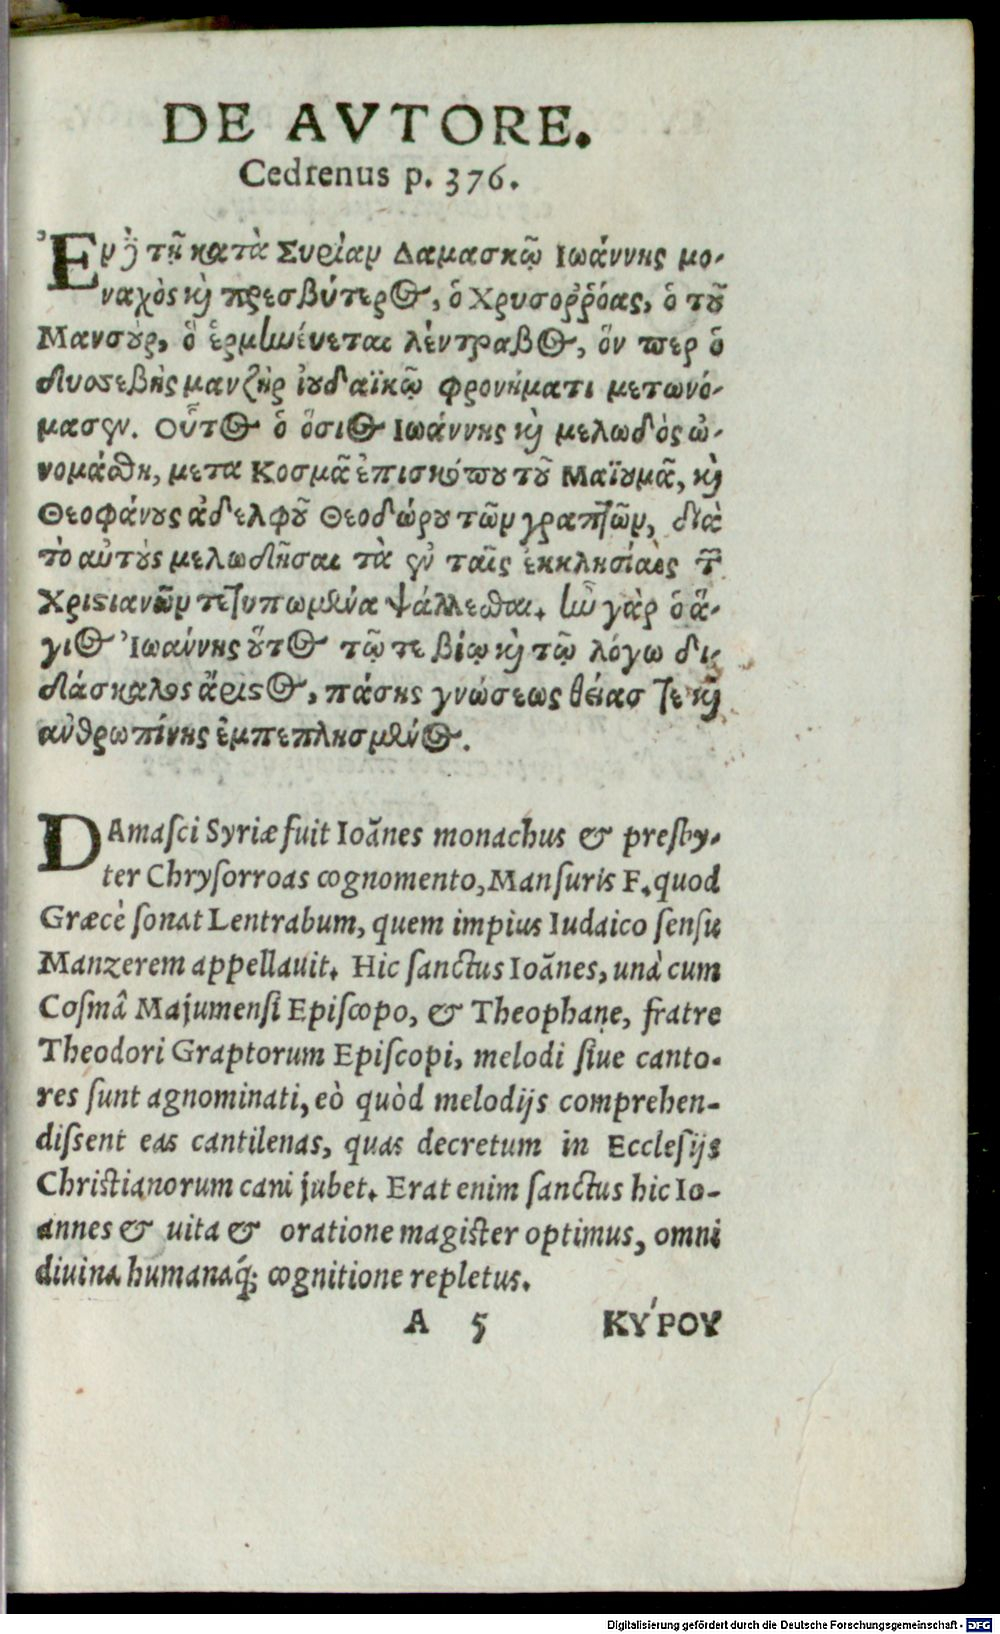 DE AVTORE.
Cedrenus p. 376.
Ἐν ἢ τῇ κατὰ Συρίαν Δαμασκῷ Ἰωάννης μο-
ναχὸς κὶ πρεσβύτερος, ὁ Χρυσοῤῥόας, ὁ τοῦ
Μανσούρ, ὃ ἑρμηνεύεται λέντραβος, ὅν περ ὁ
δυσσεβὴς μανζὴρ ἰουδαϊκῷ φρονήματι μετωνό-
μασεν. Οὗτος ὁ ὅσιος Ἰωάννης κὶ μελωδὸς ὠ-
νομάσθη, μετα Κοσμᾶ ἐπισκόπου τοῦ Μαϊουμᾶ, κὶ
Θεοφάνους ἀδελφοῦ Θεοδώρου τῶν γραπτῶν, διὰ
τὸ αὐτοὺς μελωδῆσαι τὰ ἐν ταῖς ἐκκλησίαις τῶν
Χριστιανῶν τετυπωμένα ψάλλεσθαι. ἦν γὰρ ὁ ἅ-
γιος Ἰωάννης οὗτος τῷ τε βίῳ κὶ τῷ λόγω δι-
δάσκαλος ἄριστος, πάσης γνώσεως θείας τε κὶ
ἀνθρωπίνης ἐμπεπλησμένος.
DAmaſci Syriæ fuit Ioãnes monachus & preſby-
ter Chryſorroas cognomento, Manſuris F. quod
Græcè ſonat Lentrabum, quem impius Iudaico ſenſu
Manzerem appellauit. Hic ſanctus Ioãnes, unà cum
Coſmâ Majumenſi Epiſcopo, & Theophane, fratre
Theodori Graptorum Epiſcopi, melodi ſiue canto-
res ſunt agnominati, eò quòd melodijs comprehen-
diſſent eas cantilenas, quas decretum in Eccleſijs
Chriſtianorum cani jubet. Erat enim ſanctus hic Io-
annes & uita & oratione magiſter optimus, omni
diuina humanaq́; cognitione repletus.
A 5 ΚΎΡΟΥ
Digitalisierung gefördert durch die Deutsche Forschungsgemeinschaft - DFG